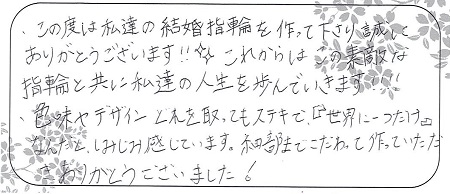 ・この度は私達の結婚指輪を作って下さり誠に
ありがとうございます!!☆ これからはこの素敵な
指輪と共に私達の人生を歩んでいきます!!!
・色味やデザインどれを取ってもステキで、『世界に一つだけ』
なんだと、しみじみ感じています。細部までこだわって作っていただ
きありがとうございました!